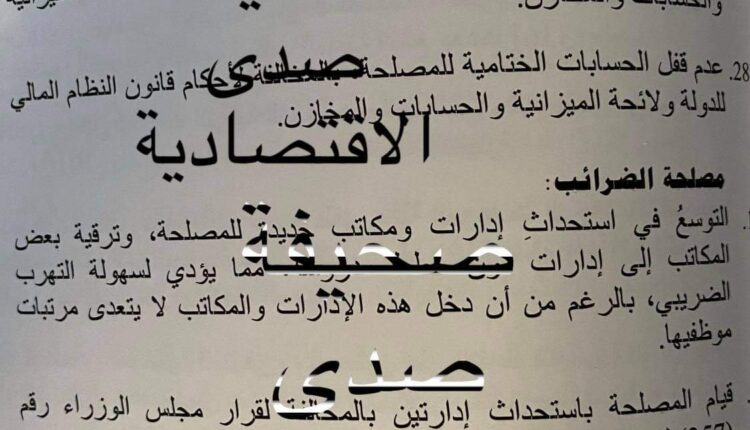 والحسابات والمخازن.
28. عدم قفل الحسابات الختامية للمصلحة، بالمخالفة لأحكام قانون النظام المالي
للدولة ولائحة الميزانية والحسابات والمخازن.
مصلحة الضرائب:
التوسعُ في استحداثِ إدارات ومكاتب جديدة للمصلحة، وترقية بعض
المكاتب إلى إدارات مما يؤدي لسهولة التهرب
الضريبي، بالرغم من أن دخل هذه الإدارات والمكاتب لا يتعدى مرتبات
موظفيها.
قيام المصلحة باستحداث إدارتين بالمخالفة لقرار مجلس الوزراء رقم
صدى
الاقتصادية
صحيفة
صدى